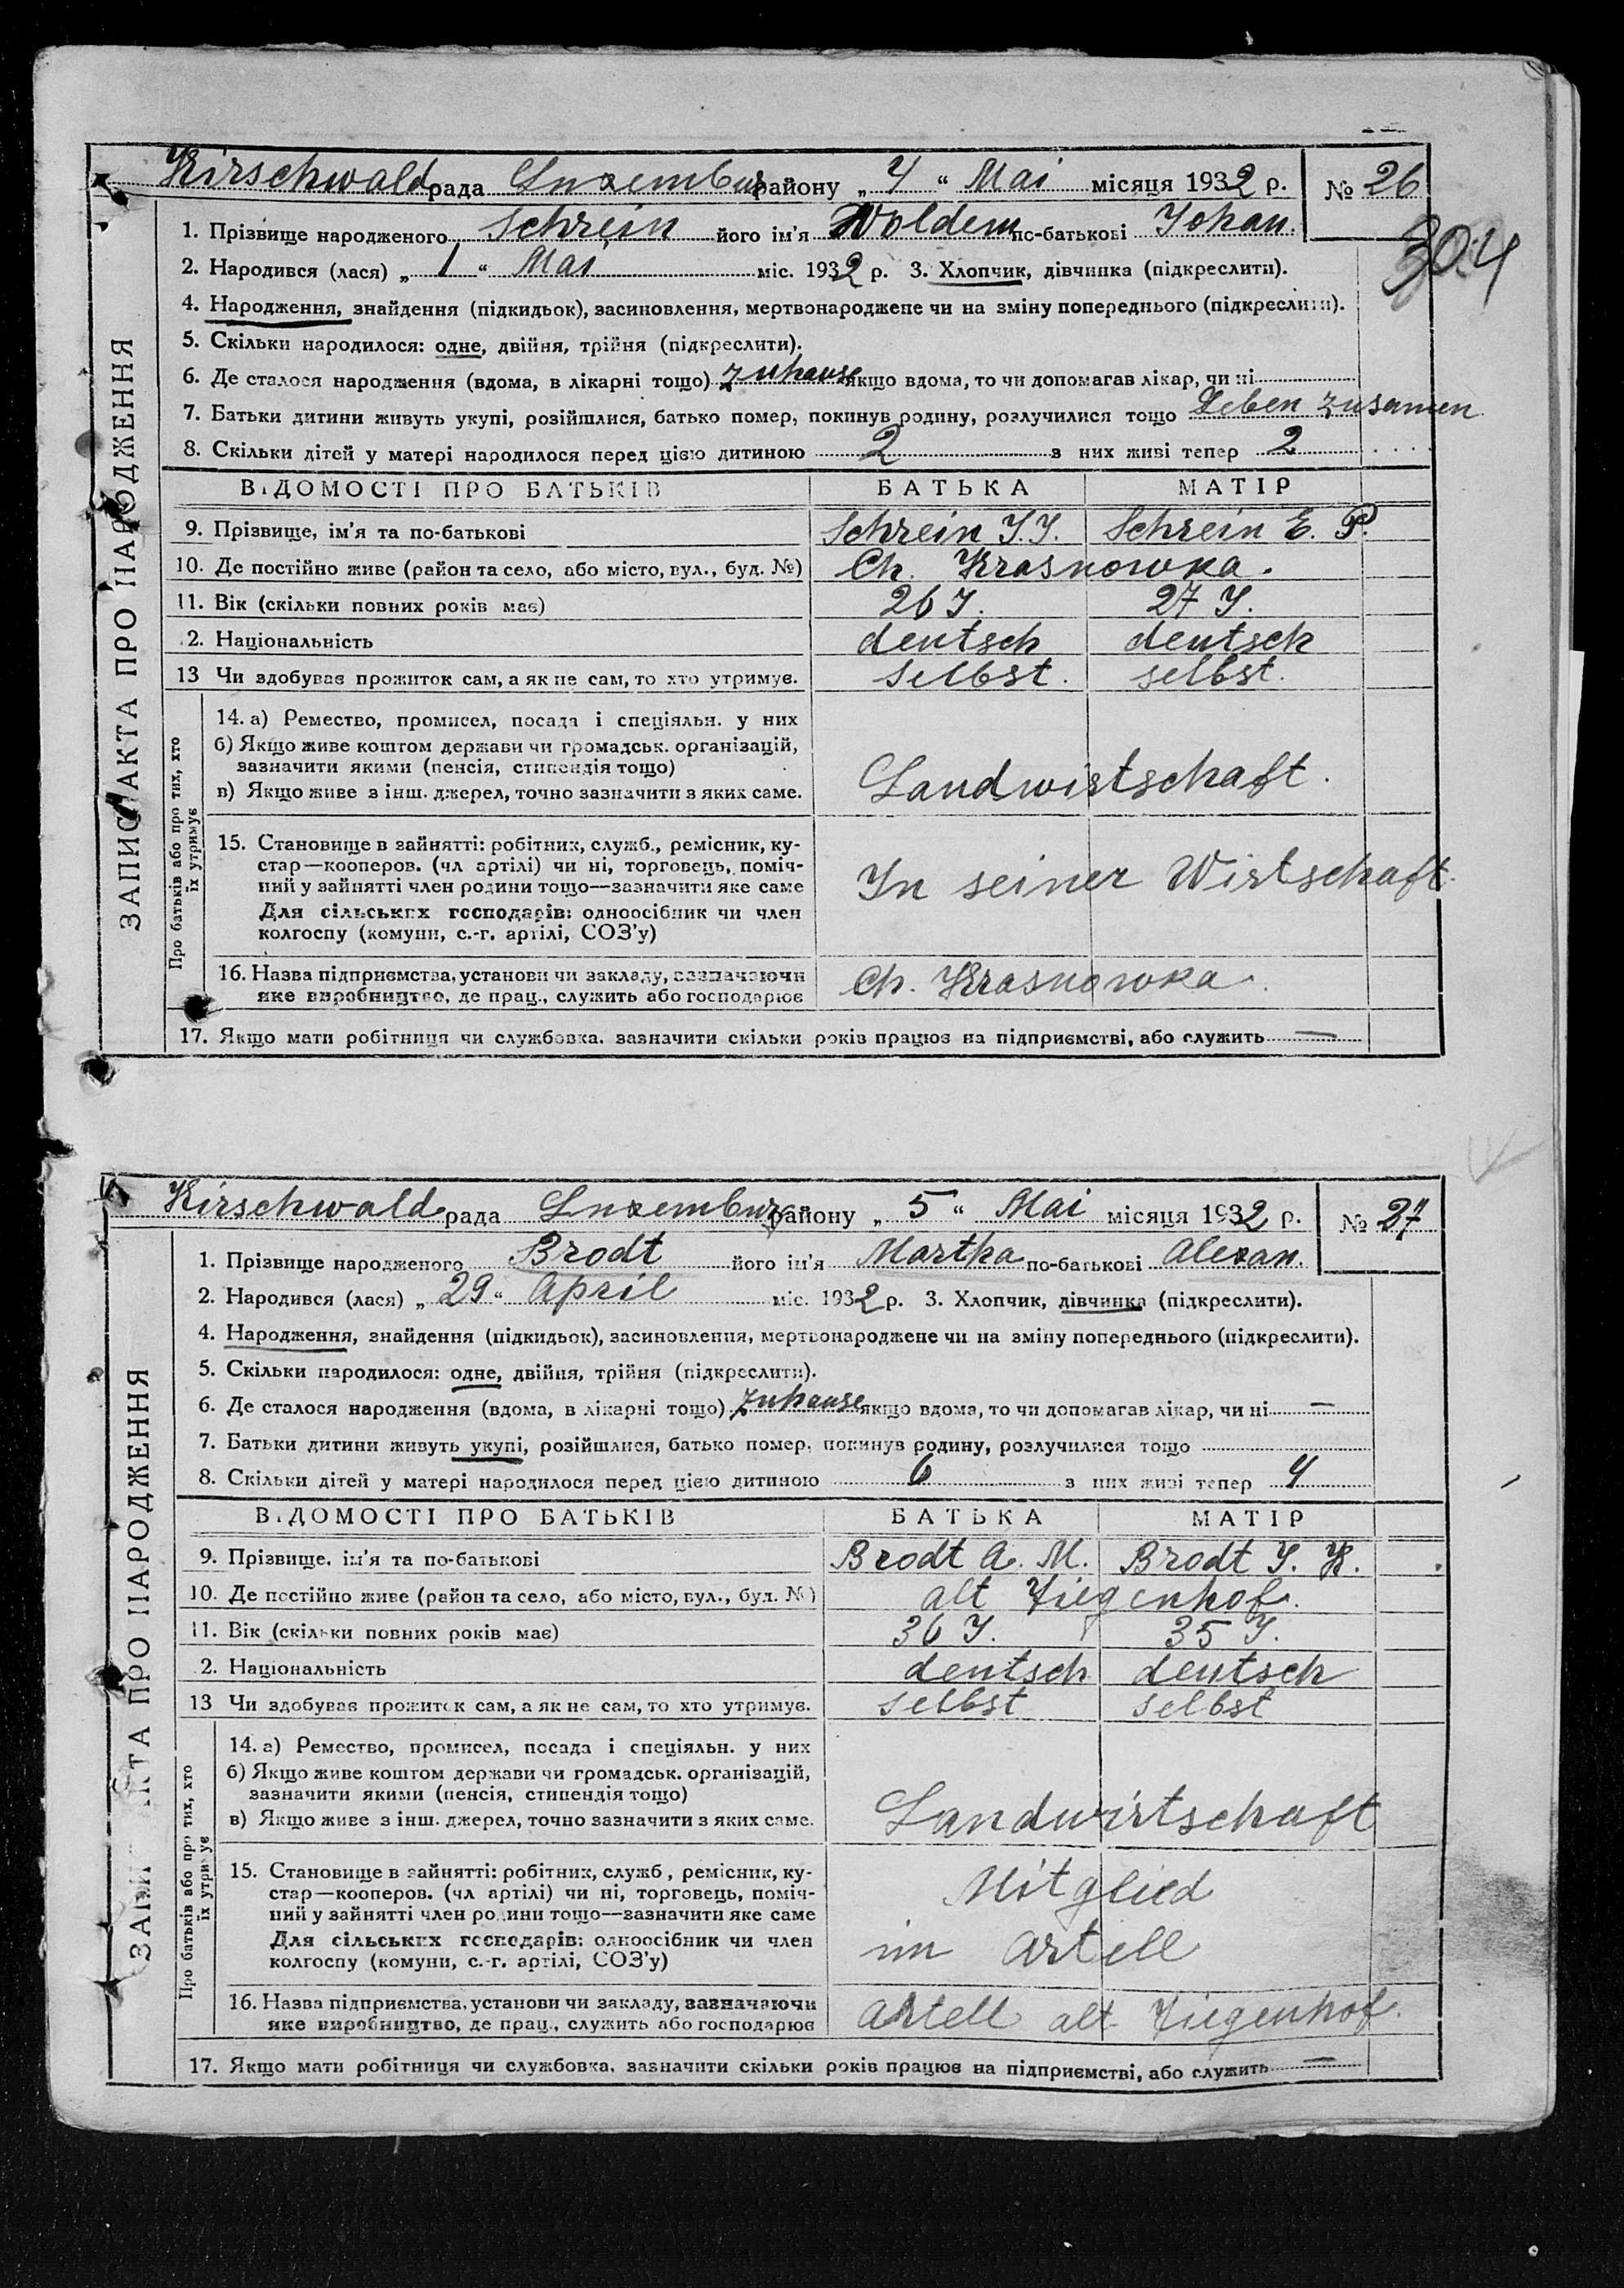 Kirschwald рада Luxemburg району „ 4 “ Mai місяця 1932 р. № 26
304
1. Прізвище народженого Schrein його ім'я Woldem по-батькові Johan.
2. Народився (лася) „ 1 “ Mai міс. 1932 р. 3. Хлопчик, дівчинка (підкреслити).
4. Народження, знайдення (підкидьок), засиновлення, мертвонароджене чи на зміну попереднього (підкреслити).
5. Скільки народилося: одне, двійня, трійня (підкреслити).
6. Де сталося народження (вдома, в лікарні тощо) zuhause якщо вдома, то чи допомагав лікар, чи ні
7. Батьки дитини живуть укупі, розійшлися, батько помер, покинув родину, розлучилися тощо Leben zusamen
8. Скільки дітей у матері народилося перед цією дитиною 2 з них живі тепер 2
ЗАПИС АКТА ПРО НАРОДЖЕННЯ
ВІДОМОСТІ ПРО БАТЬКІВ БАТЬКА МАТІР
9. Прізвище, ім'я та по-батькові Schrein J. J. Schrein E. P.
10. Де постійно живе (район та село, або місто, вул., буд. №) Ch. Krasnowka.
11. Вік (скільки повних років має) 26 J. 27 J.
2. Національність deutsch deutsch
13 Чи здобуває прожиток сам, а як не сам, то хто утримує. selbst. selbst.
Про батьків або про тих, хто їх утримує
14. а) Ремество, промисел, посада і спеціяльн. у них
б) Якщо живе коштом держави чи громадськ. організацій,
зазначити якими (пенсія, стипендія тощо)
в) Якщо живе з інш. джерел, точно зазначити з яких саме.
Landwirtschaft.
15. Становище в зайнятті: робітник, служб., ремісник, ку-
стар—кооперов. (чл артілі) чи ні, торговець, поміч-
ний у зайнятті член родини тощо—зазначити яке саме
Для сільських господарів: одноосібник чи член
колгоспу (комуни, с.-г. артілі, СОЗ'у)
In seiner Wirtschaft.
16. Назва підприємства, установи чи закладу, зазначаючи
яке виробництво, де прац., служить або господарює
Ch. Krasnowka.
17. Якщо мати робітниця чи службовка, зазначити скільки років працює на підприємстві, або служить —
Kirschwald рада Luxemburg району „ 5 “ Mai місяця 1932 р. № 27
1. Прізвище народженого Brodt його ім'я Martha по-батькові Alexan.
2. Народився (лася) „ 29 “ April міс. 1932 р. 3. Хлопчик, дівчинка (підкреслити).
4. Народження, знайдення (підкидьок), засиновлення, мертвонароджене чи на зміну попереднього (підкреслити).
5. Скільки народилося: одне, двійня, трійня (підкреслити).
6. Де сталося народження (вдома, в лікарні тощо) zuhause якщо вдома, то чи допомагав лікар, чи ні —
7. Батьки дитини живуть укупі, розійшлися, батько помер, покинув родину, розлучилися тощо
8. Скільки дітей у матері народилося перед цією дитиною 6 з них живі тепер 4
ЗАПИ КТА ПРО НАРОДЖЕННЯ
ВІДОМОСТІ ПРО БАТЬКІВ БАТЬКА МАТІР
9. Прізвище, ім'я та по-батькові Brodt A. M. Brodt J. K.
10. Де постійно живе (район та село, або місто, вул., буд. №) alt Tiegenhof.
11. Вік (скільки повних років має) 36 J. 35 J.
2. Національність deutsch deutsch
13 Чи здобуває прожиток сам, а як не сам, то хто утримує. selbst selbst
Про батьків або про тих, хто їх утримує
14. а) Ремество, промисел, посада і спеціяльн. у них
б) Якщо живе коштом держави чи громадськ. організацій,
зазначити якими (пенсія, стипендія тощо)
в) Якщо живе з інш. джерел, точно зазначити з яких саме.
Landwirtschaft
15. Становище в зайнятті: робітник, служб, ремісник, ку-
стар—кооперов. (чл артілі) чи ні, торговець, поміч-
ний у зайнятті член родини тощо—зазначити яке саме
Для сільських господарів: одноосібник чи член
колгоспу (комуни, с.-г. артілі, СОЗ'у)
Mitglied
im Artell
16. Назва підприємства, установи чи закладу, зазначаючи
яке виробництво, де прац., служить або господарює
Artell alt Tiegenhof.
17. Якщо мати робітниця чи службовка, зазначити скільки років працює на підприємстві, або служить —